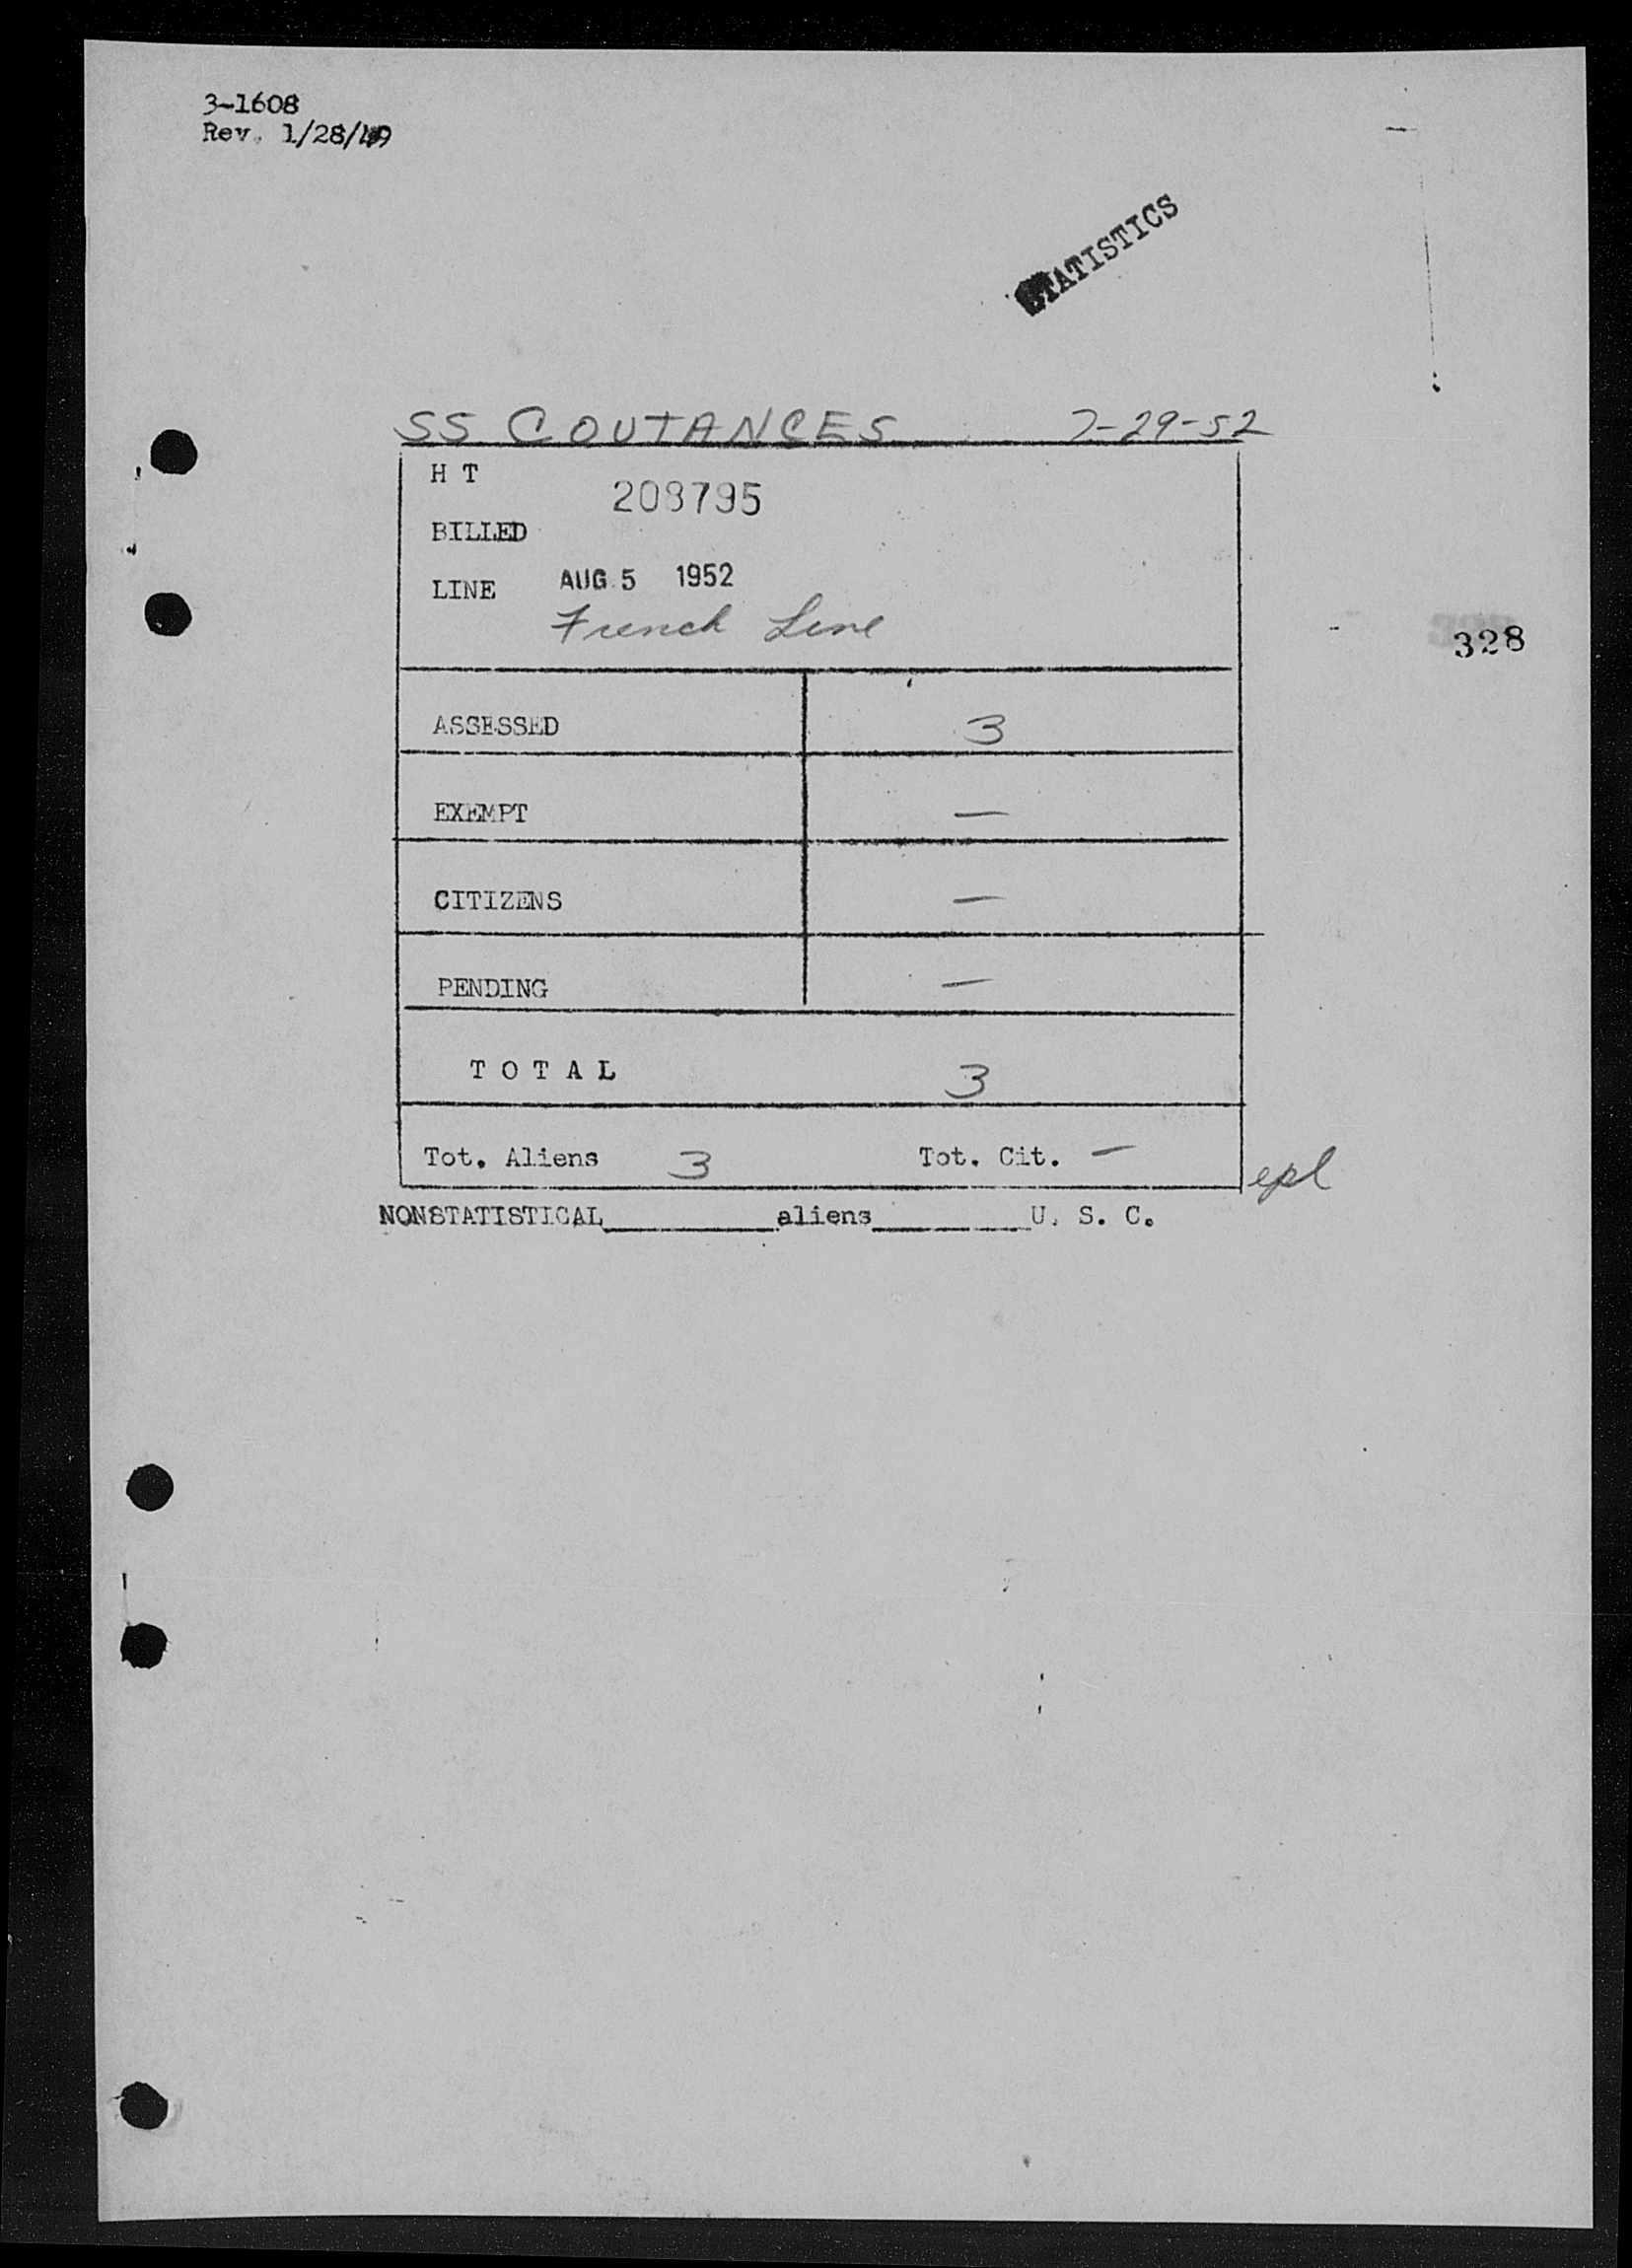 3-1608
Rev. 1/28/49
STATISTICS
SS COUTANCES 7-29-52
H T
208795
BILLED
LINE AUG 5 1952
French Line
328
ASSESSED 3
EXEMPT —
CITIZENS —
PENDING —
T O T A L 3
Tot. Aliens 3 Tot. Cit. —
epl
NONSTATISTICAL__________aliens__________U. S. C.